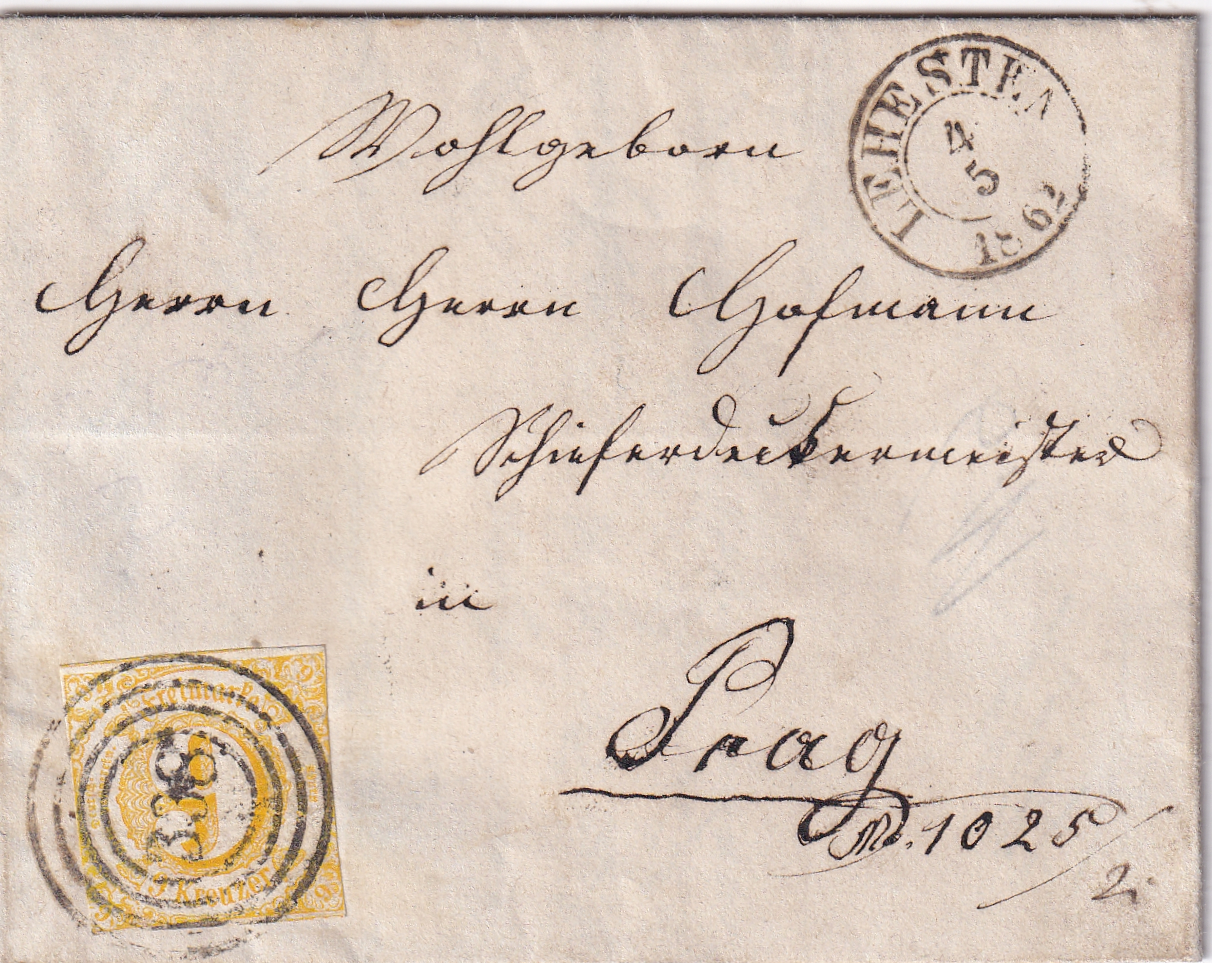 LEHESTEN
4
5
1862
Wohlgeborn
Herrn Herrn Hofmann
Schieferdeckermeister
in
Prag
No. 1025/
2.
Freimarke
9 Kreuzer